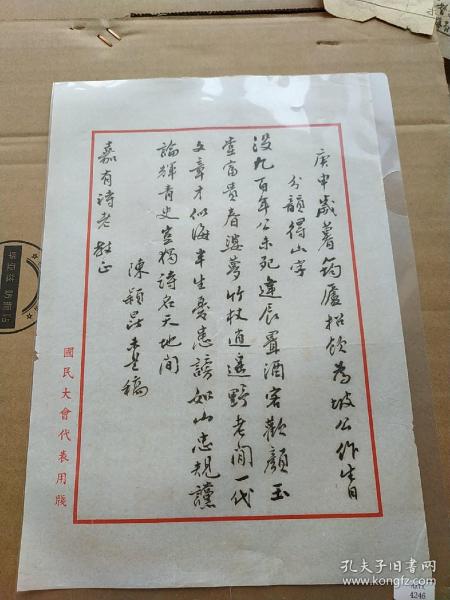 庚申歲暮筠廬招飲為坡公作生日
分韻得山字
沒九百年公未死違辰置酒客歡顏玉
堂富貴春婆夢竹杖逍遙野老閒一代
文章才似海半生憂患謗如山忠規讜
論輝青史豈獨詩名天地間
陳穎昆未是稿
嘉有詩老教正
國民大會代表用牋
孔夫子旧书网
www.kongfz.com
4246